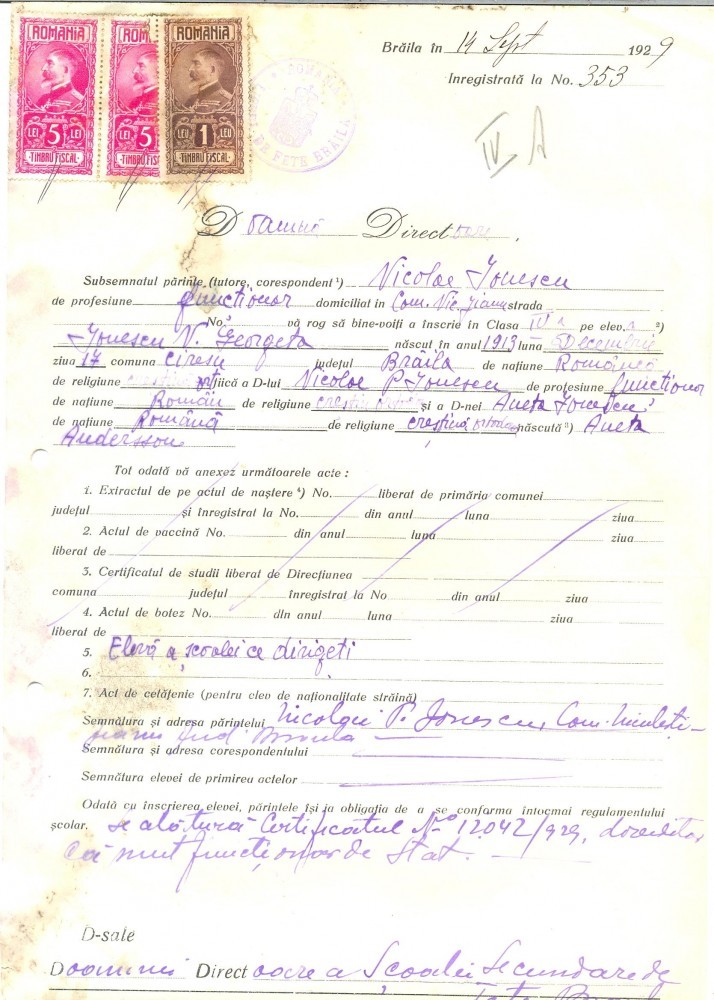 ROMANIA ROMANIA ROMANIA
LEI 5 LEI LEI 5 LEI LEU 1 LEU
TIMBRU FISCAL TIMBRU FIS TIMBRU FISCAL
DE FETE BRĂILA
Brăila în 14 Sept 1929
Inregistrată la No. 353
IV A
Doamnă Directoare,
Subsemnatul părinte (tutore, corespondent ¹) Nicolae Ionescu
de profesiune funcționar domiciliat in Com. Vic. Jianu strada
No. vă rog să bine-voiți a înscrie în Clasa IV a pe eleva ²)
Ionescu N. Georgeta născut în anul 1913 luna Decembrie
ziua 17 comuna Cireșu județul Brăila de națiune Română
de religiune creștină ort fiică a D-lui Nicolae P. Ionescu de profesiune funcționar
de națiune Român de religiune creștină ortodoxă și a D-nei Aneta Ionescu
de națiune Română de religiune creștină ortodoxă născută ³) Aneta
Andersson
Tot odată vă anexez următoarele acte :
1. Extractul de pe actul de naștere ⁴) No. liberat de primăria comunei
județul și înregistrat la No. din anul luna ziua
2. Actul de vaccină No. din anul luna ziua
liberat de
3. Certificatul de studii liberat de Direcțiunea
comuna județul înregistrat la No din anul ziua
4. Actul de botez No. din anul luna ziua
liberat de
5. Elevă a școalei ce dirigeți
6.
7. Act de cetățenie (pentru elev de naționalitate străină)
Semnătura și adresa părintelui Nicolae P. Ionescu, Com. Niculești-
Jianu Jud. Brăila
Semnătura și adresa corespondentului
Semnătura elevei de primirea actelor
Odată cu înscrierea elevei, părintele își ia obligația de a se conforma întocmai regulamentului
școlar. Se alătură Certificatul No 12042/929, doveditor
că sunt funcționar de Stat.
D-sale
Doamnei Directoare a Școalei Secundare de
Fete